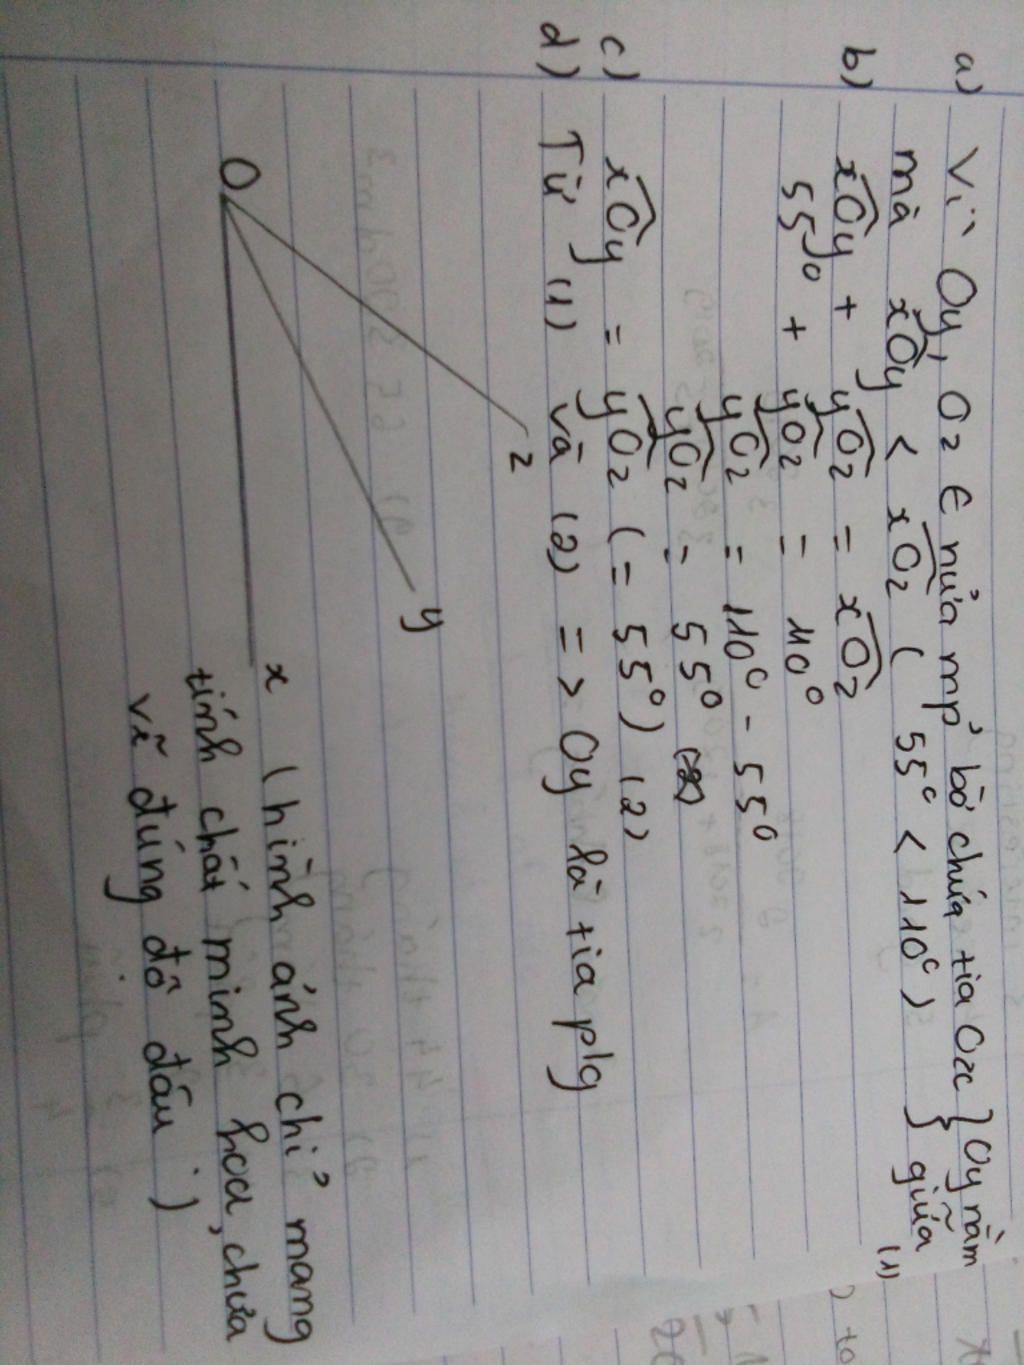 a) Vì Oy, Oz ∈ nửa mp bờ chứa tia Ox } Oy nằm
mà x̂Oy < x̂Oz ( 55° < 110° ) } giữa (1)
b) x̂Oy + ŷOz = x̂Oz
55° + ŷOz = 110°
ŷOz = 110° - 55°
ŷOz = 55°
c) x̂Oy = ŷOz ( = 55° ) (2)
d) Từ (1) và (2) => Oy là tia plg
z
y
O
x ( hình ảnh chỉ mang
tính chất minh hoạ, chưa
vẽ đúng độ đâu )